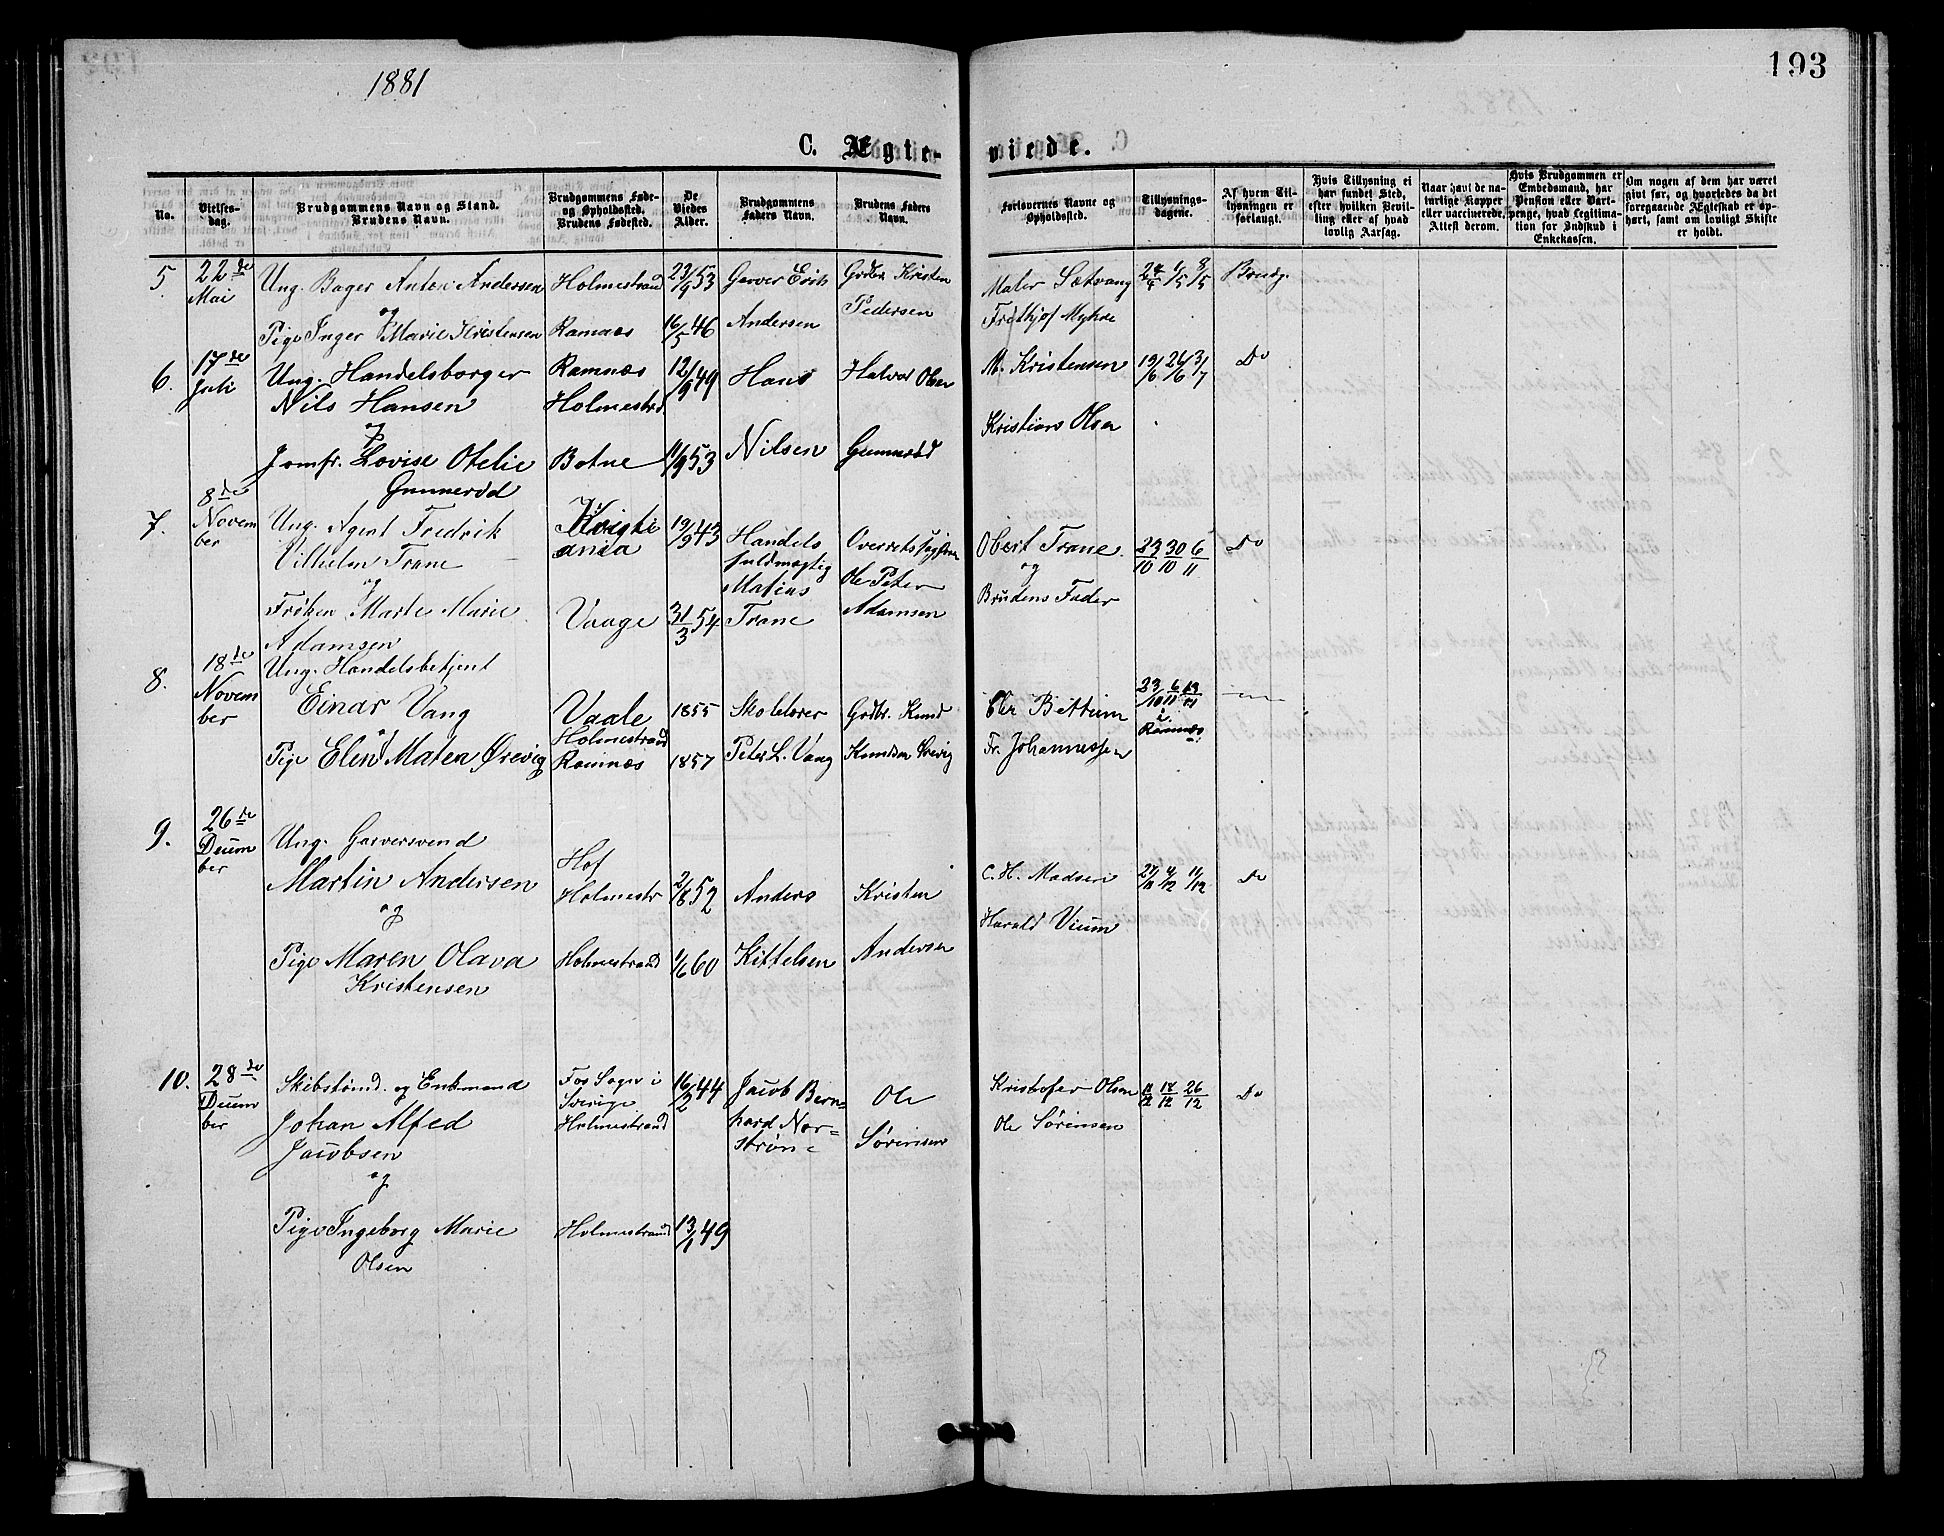 1881
193
C. Ægte-
viede.
No.
Vielses-
dag.
Brudgommens Navn og Stand.
Brudens Navn.
Brudgommens Føde-
og Opholdssted.
Brudens Fødested.
De
Viedes
Alder.
Brudgommens
Faders Navn.
Brudens Faders
Navn.
Forlovernes Navne og
Opholdssted.
Tillysnings-
dagene.
Af hvem Til-
lysningen er
forlangt.
Hvis Tillysning ei
har fundet Sted,
efter hvilken Bevil-
ling eller af hvad
lovlig Aarsag.
Naar havt de na-
turlige Kopper
eller vaccinerede,
Attest derom.
Hvis Brudgommen er
Embedsmand, har
Pension eller Vart-
penge, hvad Legitima-
tion for Indskud i
Enkekassen.
Om nogen af dem har været
gift før, og hvorledes da det
foregaaende Ægteskab er op-
hørt, samt om lovligt Skifte
er holdt.
5
22de
Mai
Ung. Bager Anton Andersen
og
Pige Inger Marie Kristensen
Holmestrand
Ramnæs
23/9 53
16/5 46
Garver Erik
Andersen
Grdbr. Kristen
Pedersen
Maler Sætvang
Fridthjof Myhre
24/4 1/5 8/5
Brudg.
6.
17de
Juli
Ung. Handelsborger
Nils Hansen
og
Jomfr. Lovise Otelie
Gunnerød
Ramnæs
Holmestrd
Botne
12/9 49
11/9 53
Hans
Nilsen
Halvor Olsen
Gunnerød
M. Kristensen
Kristians Olsen
19/6 26/6 3/7
Do
7.
8de
Novem
ber
Ung. Agent Fredrik
Vilhelm Trane
og
Frøken Marte Marie
Adamsen
Kristi
ania
Vaage
19/9 43
31/3 54
Handels
fuldmægtig
Matias
Trane
Overretssagfører
Ole Peter
Adamsen
Obert Trane
og
Brudens Fader
23/10 30/10 6/11
Do
8.
18de
Novem
ber
Ung. Handelsbetjent
Einar Vang
og
Pige Elen Maten Ørevig
Vaale
Holmestrand
Ramnæs
1855
1857
Skolelærer
Peter L. Vang
Grdbr. Knud
Knudsen Ørevig
Chr Bettum
Fr. Johannessen
23/10 6/11 13/11
i
Ramnæs
9.
26de
Decem
ber
Ung. Garversvend
Martin Andersen
og
Pige Maren Olava
Kristensen
Hof
Holmestr
Holmestrand
2/8 52
1/6 60
Anders
Kittelsen
Kristen
Andersen
C. H. Madsen
Harald Vium
27/11 4/12 11/12
Do
10.
28de
Decem
ber
Skibstømd. og Enkemand
Johan Alfed
Jacobsen
og
Pige Ingeborg Marie
Olsen
Fos Sogn i
Sverige
Holmestrand
Holmestrand
16/2 44
13/1 49
Jacob Bern=
hard Nor=
strøm
Ole
Sørensen
Kristofer Olsen
Ole Sørensen
11/12 18/12 26/12
Do